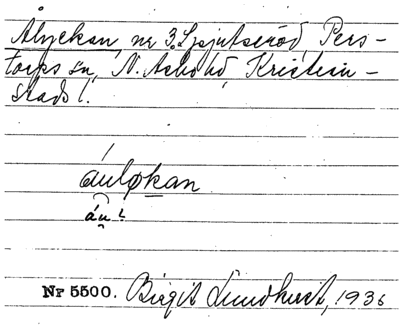 Ålyckan, nr 3, Ljejutseröd, Pers-
torps sn, N. Åsbo hd, Kristian-
stads l.
áuløkan
áu!
Nr 5500. Birgit Lundkvist, 1936